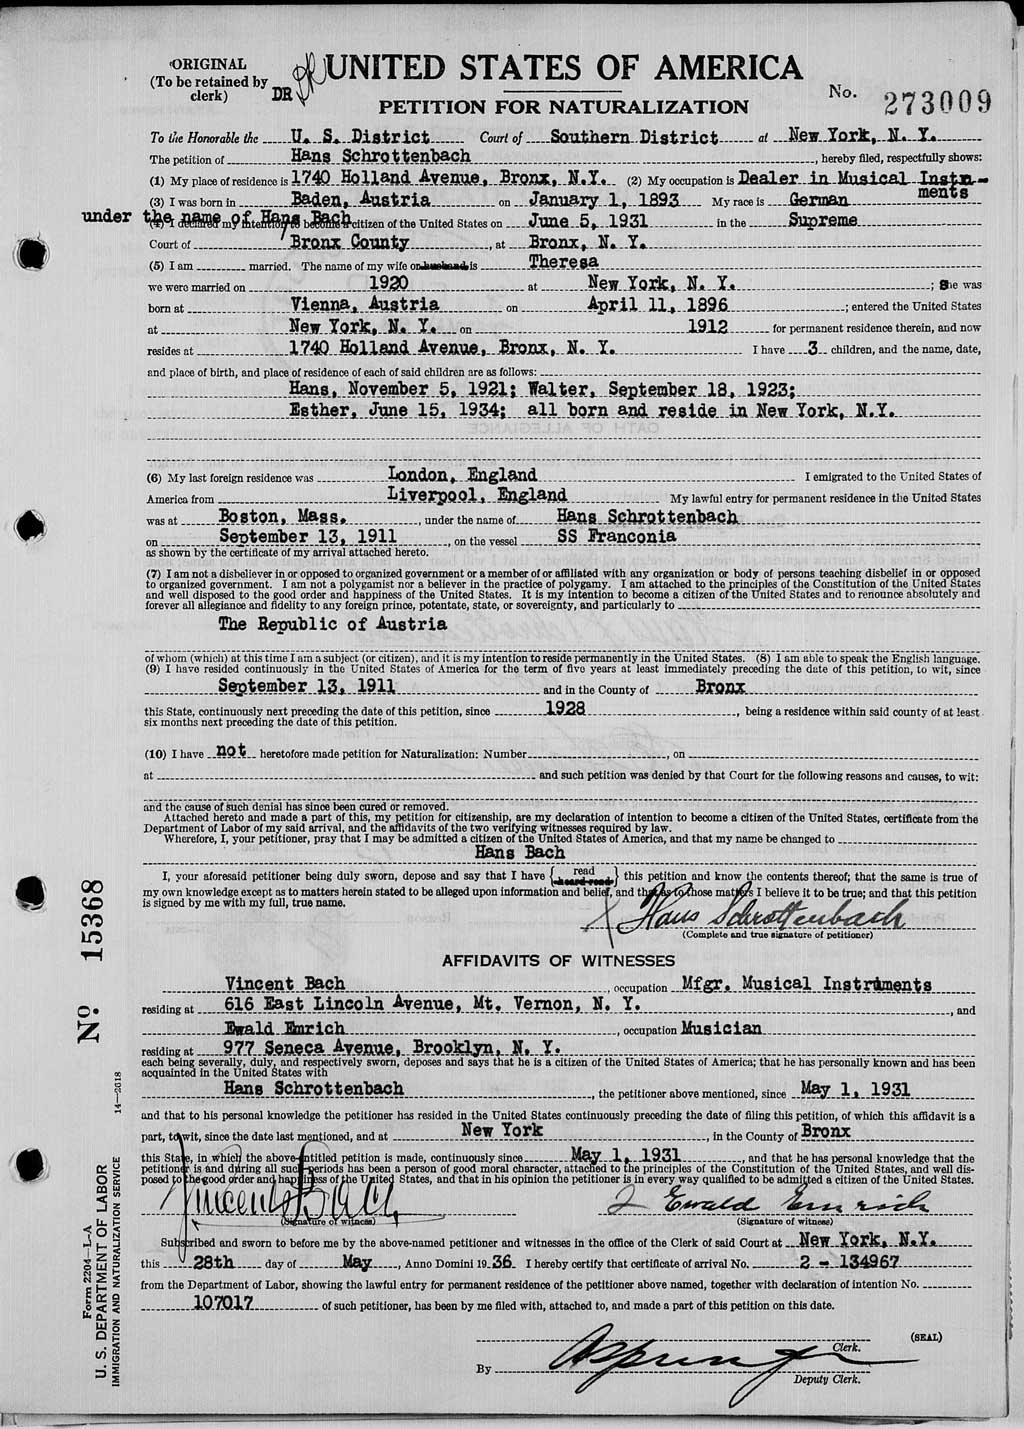 ORIGINAL
(To be retained by
clerk)
DR
UNITED STATES OF AMERICA
PETITION FOR NATURALIZATION
No. 273009
To the Honorable the U. S. District Court of Southern District at New York, N. Y.
The petition of Hans Schrottenbach, hereby filed, respectfully shows:
(1) My place of residence is 1740 Holland Avenue, Bronx, N.Y. (2) My occupation is Dealer in Musical Instru-
ments
(3) I was born in Baden, Austria on January 1, 1893 My race is German
under the name of Hans Bach
(4) I declared my intention to become a citizen of the United States on June 5, 1931 in the Supreme
Court of Bronx County, at Bronx, N. Y.
(5) I am married. The name of my wife or husband is Theresa
we were married on 1920 at New York, N. Y.; she was
born at Vienna, Austria on April 11, 1896; entered the United States
at New York, N. Y. on 1912 for permanent residence therein, and now
resides at 1740 Holland Avenue, Bronx, N. Y. I have 3 children, and the name, date,
and place of birth, and place of residence of each of said children are as follows:
Hans, November 5, 1921; Walter, September 18, 1923;
Esther, June 15, 1934; all born and reside in New York, N.Y.
(6) My last foreign residence was London, England I emigrated to the United States of
America from Liverpool, England My lawful entry for permanent residence in the United States
was at Boston, Mass., under the name of Hans Schrottenbach
on September 13, 1911, on the vessel SS Franconia
as shown by the certificate of my arrival attached hereto.
(7) I am not a disbeliever in or opposed to organized government or a member of or affiliated with any organization or body of persons teaching disbelief in or opposed
to organized government. I am not a polygamist nor a believer in the practice of polygamy. I am attached to the principles of the Constitution of the United States
and well disposed to the good order and happiness of the United States. It is my intention to become a citizen of the United States and to renounce absolutely and
forever all allegiance and fidelity to any foreign prince, potentate, state, or sovereignty, and particularly to
The Republic of Austria
of whom (which) at this time I am a subject (or citizen), and it is my intention to reside permanently in the United States. (8) I am able to speak the English language.
(9) I have resided continuously in the United States of America for the term of five years at least immediately preceding the date of this petition, to wit, since
September 13, 1911 and in the County of Bronx
this State, continuously next preceding the date of this petition, since 1928, being a residence within said county of at least
six months next preceding the date of this petition.
(10) I have not heretofore made petition for Naturalization: Number, on
at and such petition was denied by that Court for the following reasons and causes, to wit:
and the cause of such denial has since been cured or removed.
Attached hereto and made a part of this, my petition for citizenship, are my declaration of intention to become a citizen of the United States, certificate from the
Department of Labor of my said arrival, and the affidavits of the two verifying witnesses required by law.
Wherefore, I, your petitioner, pray that I may be admitted a citizen of the United States of America, and that my name be changed to
Hans Bach
I, your aforesaid petitioner being duly sworn, depose and say that I have { read } this petition and know the contents thereof; that the same is true of
my own knowledge except as to matters herein stated to be alleged upon information and belief, and that as to those matters I believe it to be true; and that this petition
is signed by me with my full, true name.
X Hans Schrottenbach
(Complete and true signature of petitioner)
AFFIDAVITS OF WITNESSES
Vincent Bach, occupation Mfgr. Musical Instruments
residing at 616 East Lincoln Avenue, Mt. Vernon, N. Y., and
Ewald Emrich, occupation Musician
residing at 977 Seneca Avenue, Brooklyn, N. Y.
each being severally, duly, and respectively sworn, deposes and says that he is a citizen of the United States of America; that he has personally known and has been
acquainted in the United States with
Hans Schrottenbach, the petitioner above mentioned, since May 1, 1931
and that to his personal knowledge the petitioner has resided in the United States continuously preceding the date of filing this petition, of which this affidavit is a
part, to wit, since the date last mentioned, and at New York, in the County of Bronx
this State, in which the above-entitled petition is made, continuously since May 1, 1931, and that he has personal knowledge that the
petitioner is and during all such periods has been a person of good moral character, attached to the principles of the Constitution of the United States, and well dis-
posed to the good order and happiness of the United States, and that in his opinion the petitioner is in every way qualified to be admitted a citizen of the United States.
Vincent Bach
(Signature of witness)
2 Ewald Emrich
(Signature of witness)
Subscribed and sworn to before me by the above-named petitioner and witnesses in the office of the Clerk of said Court at New York, N.Y.
this 28th day of May, Anno Domini 19 36 I hereby certify that certificate of arrival No. 2 - 134967
from the Department of Labor, showing the lawful entry for permanent residence of the petitioner above named, together with declaration of intention No.
107017 of such petitioner, has been by me filed with, attached to, and made a part of this petition on this date.
(SEAL)
Clerk.
By
Deputy Clerk.
No. 15368
14—2618
Form 2204—L-A
U. S. DEPARTMENT OF LABOR
IMMIGRATION AND NATURALIZATION SERVICE